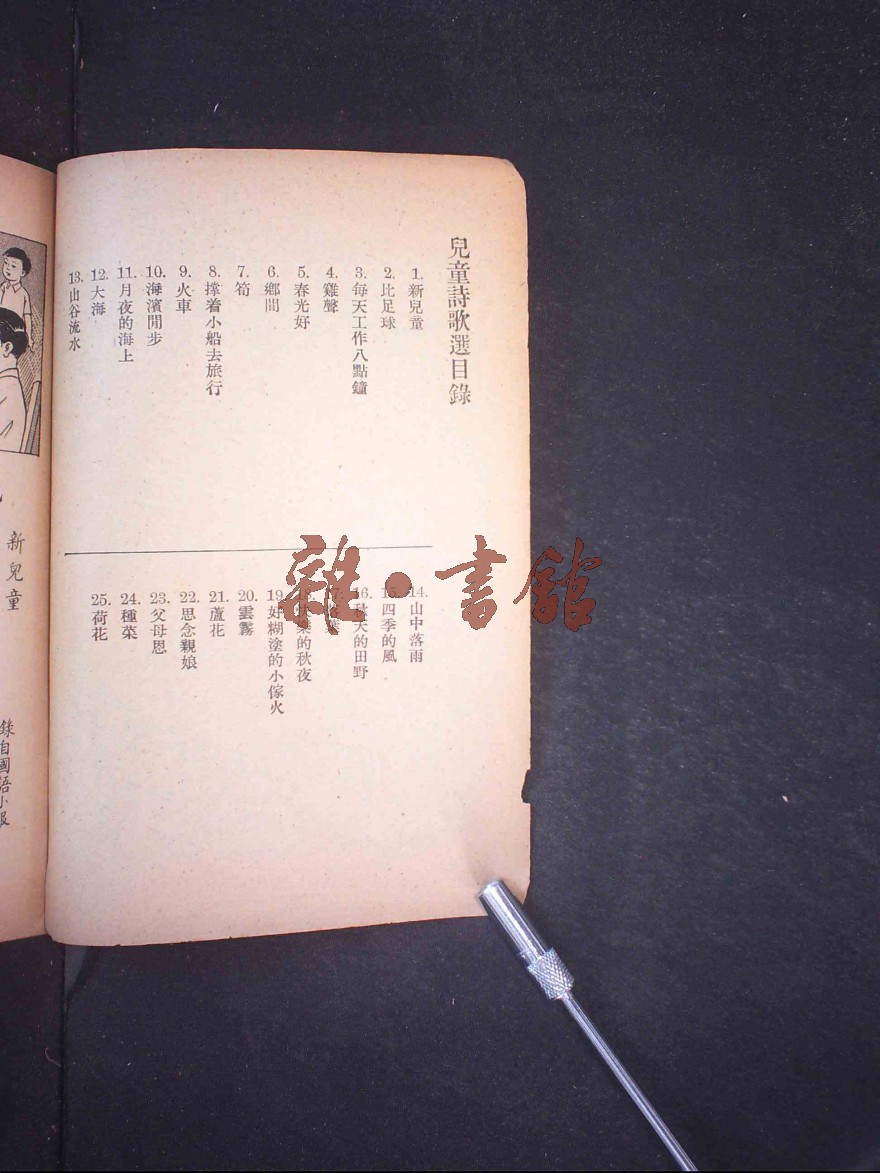 兒童詩歌選目錄
1. 新兒童
2. 比足球
3. 每天工作八點鐘
4. 雞聲
5. 春光好
6. 鄉間
7. 筍
8. 撑着小船去旅行
9. 火車
10. 海濱閒步
11. 月夜的海上
12. 大海
13. 山谷流水
14. 山中落雨
15. 四季的風
16. 秋天的田野
18. 的秋夜
19. 好糊塗的小傢火
20. 雲霧
21. 蘆花
22. 思念親娘
23. 父母恩
24. 種菜
25. 荷花
雜·書館
新兒童
錄自國語小報